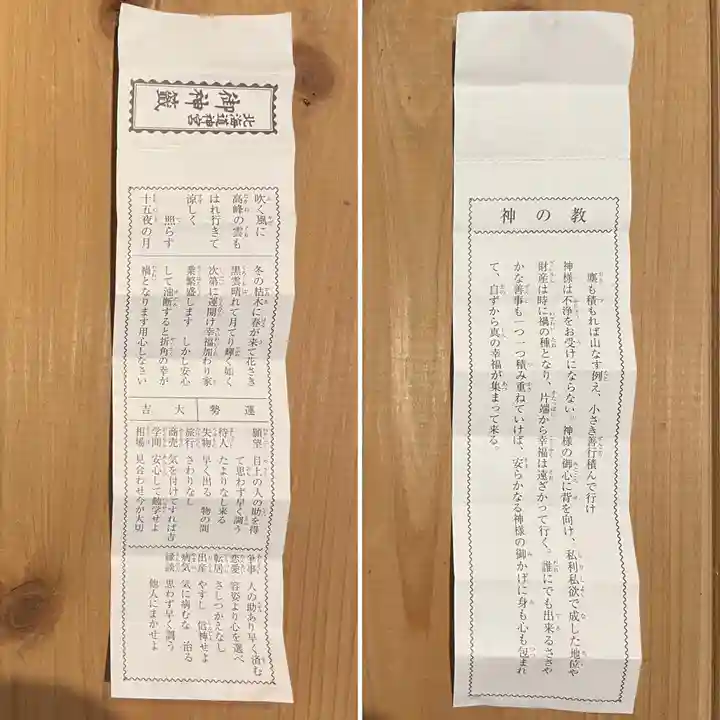 北海道神宮
御神籤
吹く風に
高峰の雲も
はれ行きて
涼しく
照らす
十五夜の月
冬の枯木に春が来て花さき
黒雲晴れて月てり輝く如く
次第に運開け幸福加わり家
業繁盛します しかし安心
して油断すると折角の幸が
禍となります用心しなさい
運勢 大吉
願望 目上の人の助を得
て思わず早く調う
待人 たよりなし来る
失物 早く出る 物の間
旅行 さわりなし
商売 気を付けてすれば吉
学問 安心して勉学せよ
相場 見合わせ今が大切
争事 人の助あり早く済む
恋愛 容姿より心を選べ
転居 さしつかえなし
出産 やすし 信神せよ
病気 気に病むな 治る
縁談 思わず早く調う
他人にまかせよ
神の教
塵も積もれば山なす例え、小さき善行積んで行け
神様は不浄をお受けにならない。神様の御心に背を向け、私利私欲で成した地位や
財産は時に禍の種となり、片端から幸福は遠ざかって行く。誰にでも出来るささや
かな善事も一つ一つ積み重ねていけば、安らかなる神様の御かげに身も心も包まれ
て、自ずから真の幸福が集まって来る。